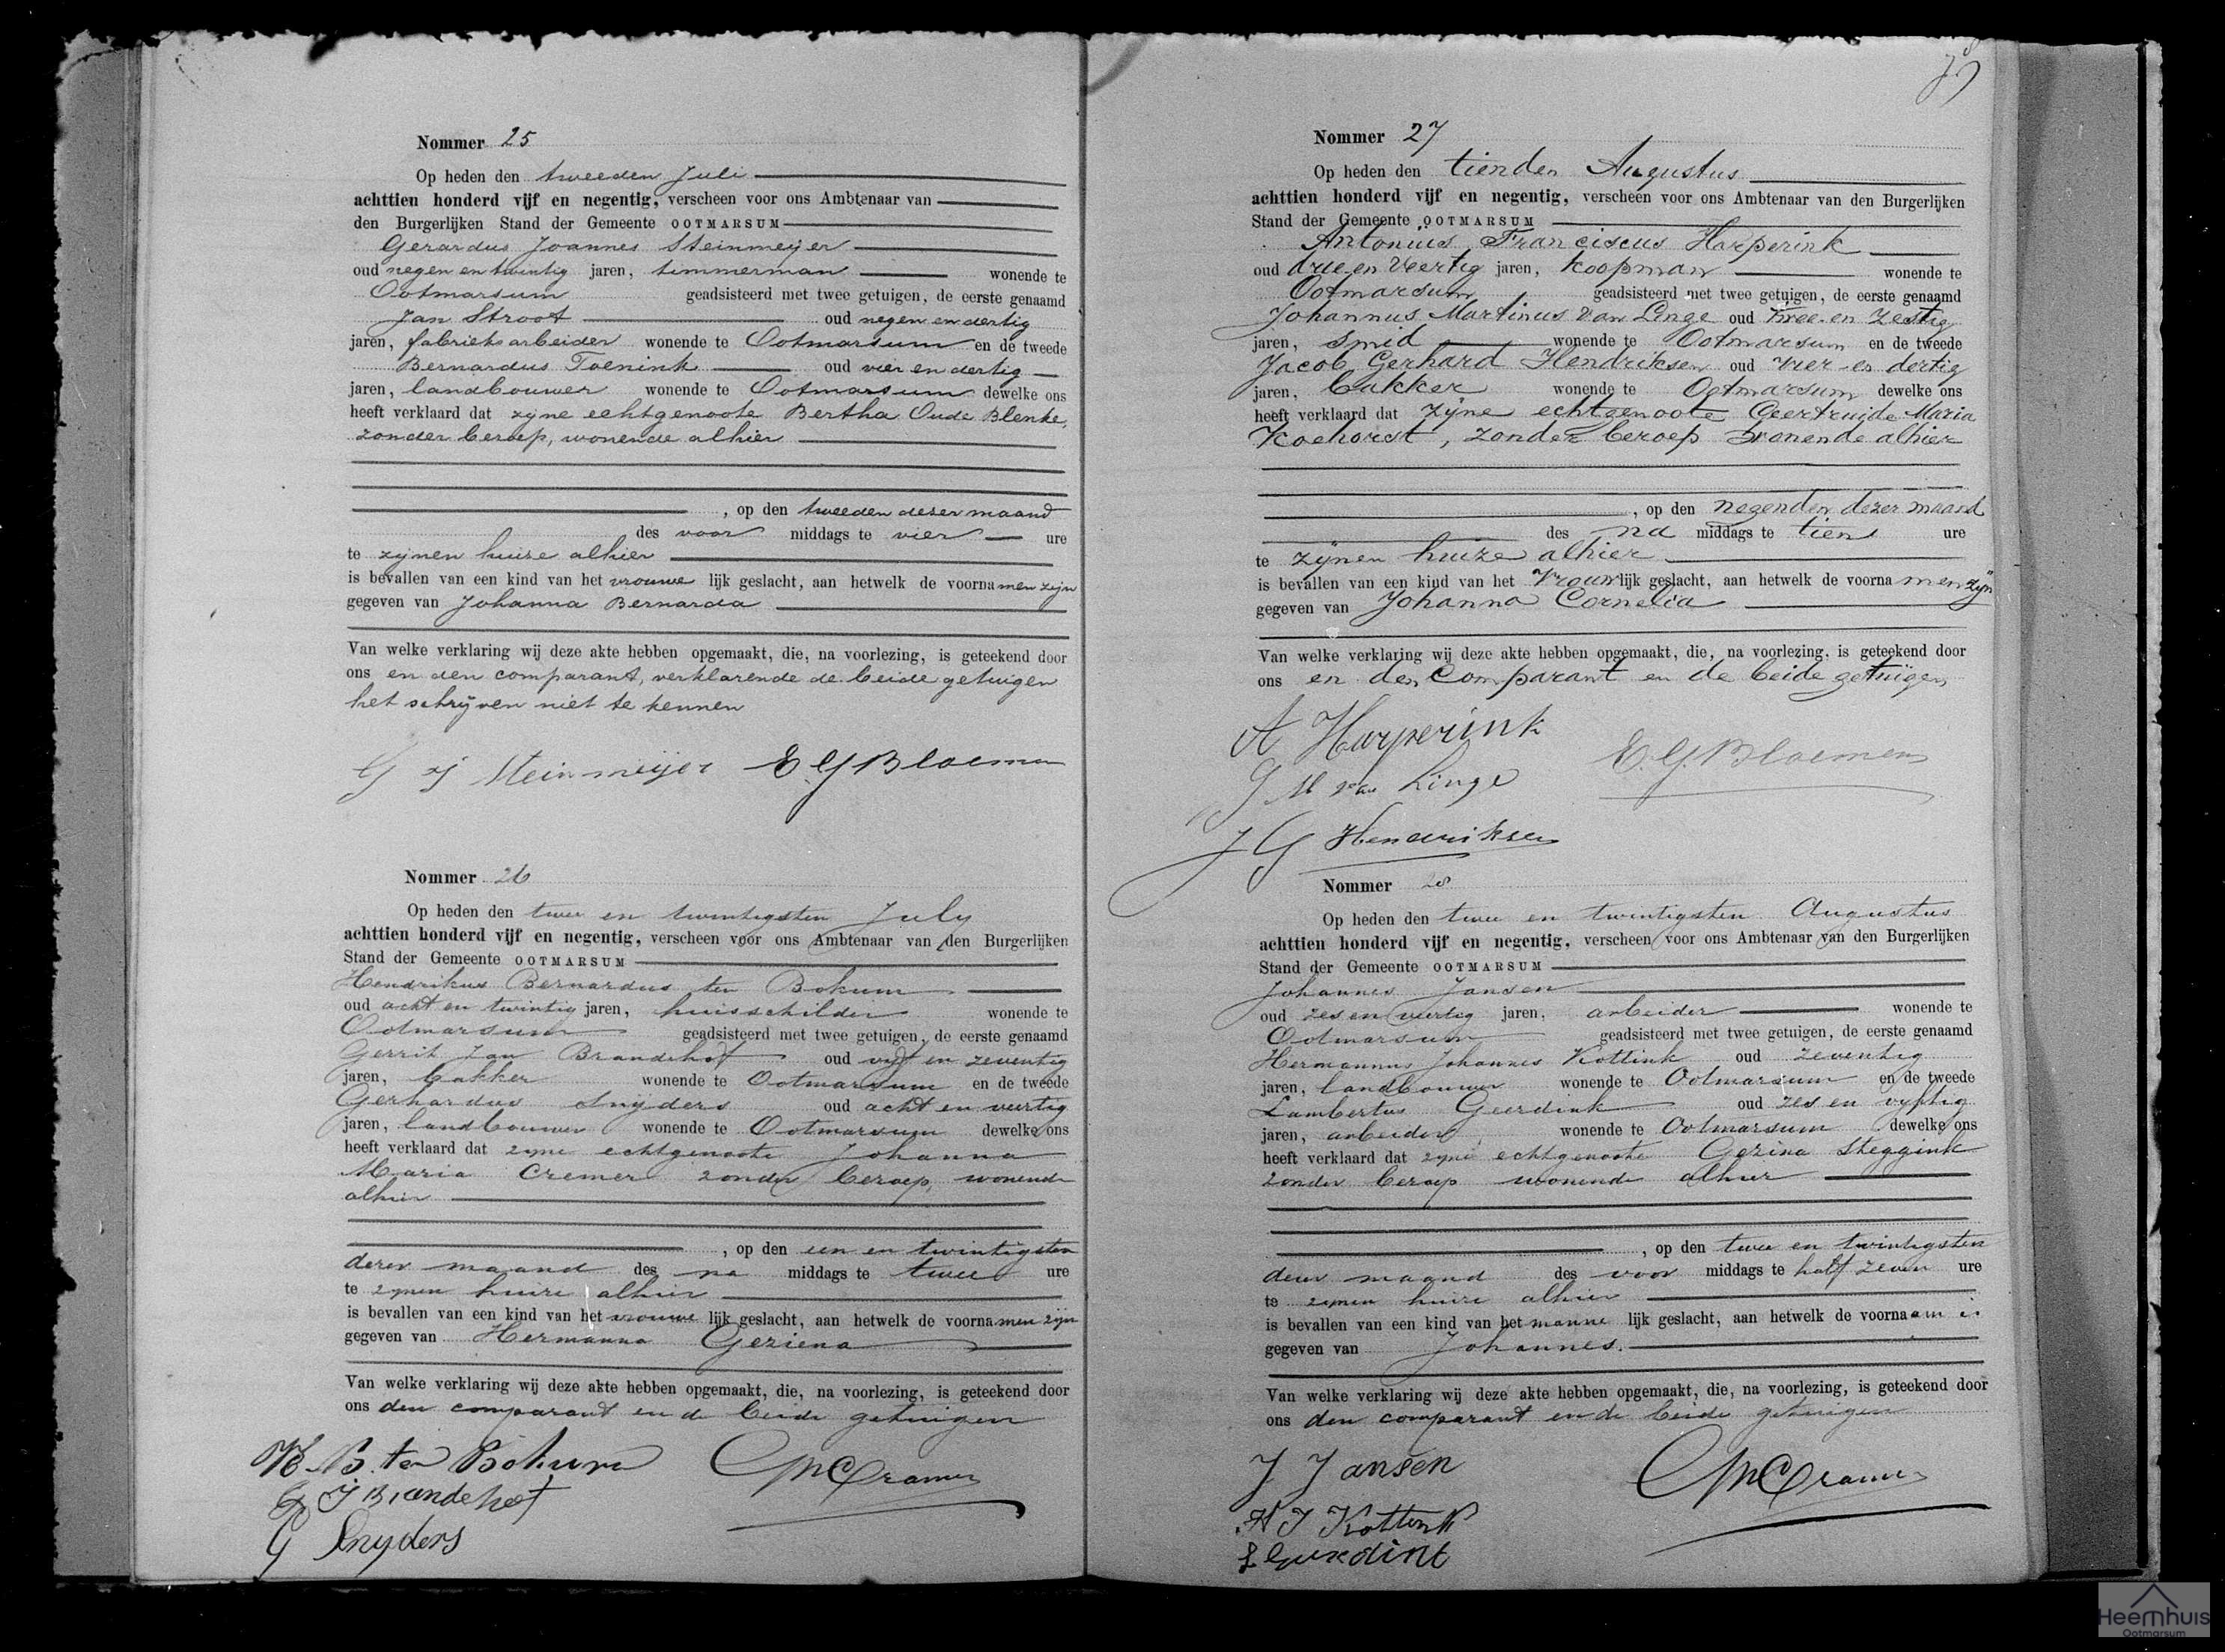 Nommer 25
Op heden den tweeden Juli
achttien honderd vijf en negentig, verscheen voor ons Ambtenaar van
den Burgerlijken Stand der Gemeente OOTMARSUM
Gerardus Joannes Steinmeijer
oud negen en twintig jaren, timmerman wonende te
Ootmarsum geadsisteerd met twee getuigen, de eerste genaamd
Jan Stroot oud negen en dertig
jaren, fabrieksarbeider wonende te Ootmarsum en de tweede
Bernardus Toenink oud vier en dertig
jaren, landbouwer wonende te Ootmarsum dewelke ons
heeft verklaard dat zijne echtgenoote Bertha Oude Blenke,
zonder beroep, wonende alhier
, op den tweeden dezer maand
des voor middags te vier ure
te zijnen huize alhier
is bevallen van een kind van het vrouwe lijk geslacht, aan hetwelk de voornamen zijn
gegeven van Johanna Bernarda
Van welke verklaring wij deze akte hebben opgemaakt, die, na voorlezing, is geteekend door
ons en den comparant, verklarende de beide getuigen
het schrijven niet te kennen
G J Steinmeijer E. G. Bloemen
Nommer 26
Op heden den twee en twintigsten July
achttien honderd vijf en negentig, verscheen voor ons Ambtenaar van den Burgerlijken
Stand der Gemeente OOTMARSUM
Hendrikus Bernardus ten Bokum
oud acht en twintig jaren, huisschilder wonende te
Ootmarsum geadsisteerd met twee getuigen, de eerste genaamd
Gerrit Jan Brandehof oud vijf en zeventig
jaren, bakker wonende te Ootmarsum en de tweede
Gerhardus Snijders oud acht en veertig
jaren, landbouwer wonende te Ootmarsum dewelke ons
heeft verklaard dat zijne echtgenoote Johanna
Maria Cremer zonder beroep, wonende
alhier
, op den een en twintigsten
dezer maand des na middags te twee ure
te zijnen huize alhier
is bevallen van een kind van het vrouwe lijk geslacht, aan hetwelk de voornamen zijn
gegeven van Hermanna Geziena
Van welke verklaring wij deze akte hebben opgemaakt, die, na voorlezing, is geteekend door
ons den comparant en de beide getuigen
H. B. ten Bokum Cramer
G J Brandehof
G Snyders
Nommer 27
Op heden den tienden Augustus
achttien honderd vijf en negentig, verscheen voor ons Ambtenaar van den Burgerlijken
Stand der Gemeente OOTMARSUM
Antonius Franciscus Harperink
oud drie en Veertig jaren, Koopman wonende te
Ootmarsum geadsisteerd met twee getuigen, de eerste genaamd
Johannus Martinus van Linge oud twee en zestig
jaren, Smid wonende te Ootmarsum en de tweede
Jacob Gerhard Hendriksen oud vier en dertig
jaren, bakker wonende te Ootmarsum dewelke ons
heeft verklaard dat zijne echtgenoote Geertruide Maria
Koehorst, zonder beroep wonende alhier
, op den negenden dezer maand
des na middags te tien ure
te zijnen huize alhier
is bevallen van een kind van het vrouwlijk geslacht, aan hetwelk de voornamen zijn
gegeven van Johanna Cornelia
Van welke verklaring wij deze akte hebben opgemaakt, die, na voorlezing, is geteekend door
ons en den Comparant en de beide getuigen
A Harperink E. G. Bloemen
J M van Linge
J G Hendriksen
Nommer 28
Op heden den twee en twintigsten Augustus
achttien honderd vijf en negentig, verscheen voor ons Ambtenaar van den Burgerlijken
Stand der Gemeente OOTMARSUM
Johannes Jansen
oud zes en veertig jaren, arbeider wonende te
Ootmarsum geadsisteerd met twee getuigen, de eerste genaamd
Hermannus Johannes Kottink oud zeventig
jaren, landbouwer wonende te Ootmarsum en de tweede
Lambertus Geerdink oud zes en vijftig
jaren, arbeider wonende te Ootmarsum dewelke ons
heeft verklaard dat zijne echtgenoote Gezina Steggink
zonder beroep wonende alhier
, op den twee en twintigsten
dezer maand des voor middags te half zeven ure
te zijnen huize alhier
is bevallen van een kind van het manne lijk geslacht, aan hetwelk de voornaam is
gegeven van Johannes.
Van welke verklaring wij deze akte hebben opgemaakt, die, na voorlezing, is geteekend door
ons den comparant en de beide getuigen
J Jansen Cramer
H J Kottink
L Geerdink
Heemhuis
Ootmarsum